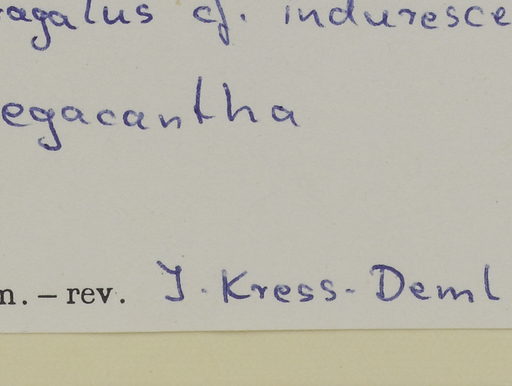 ragalus cf. induresce
egacantha
n. – rev. I. Kress-Deml